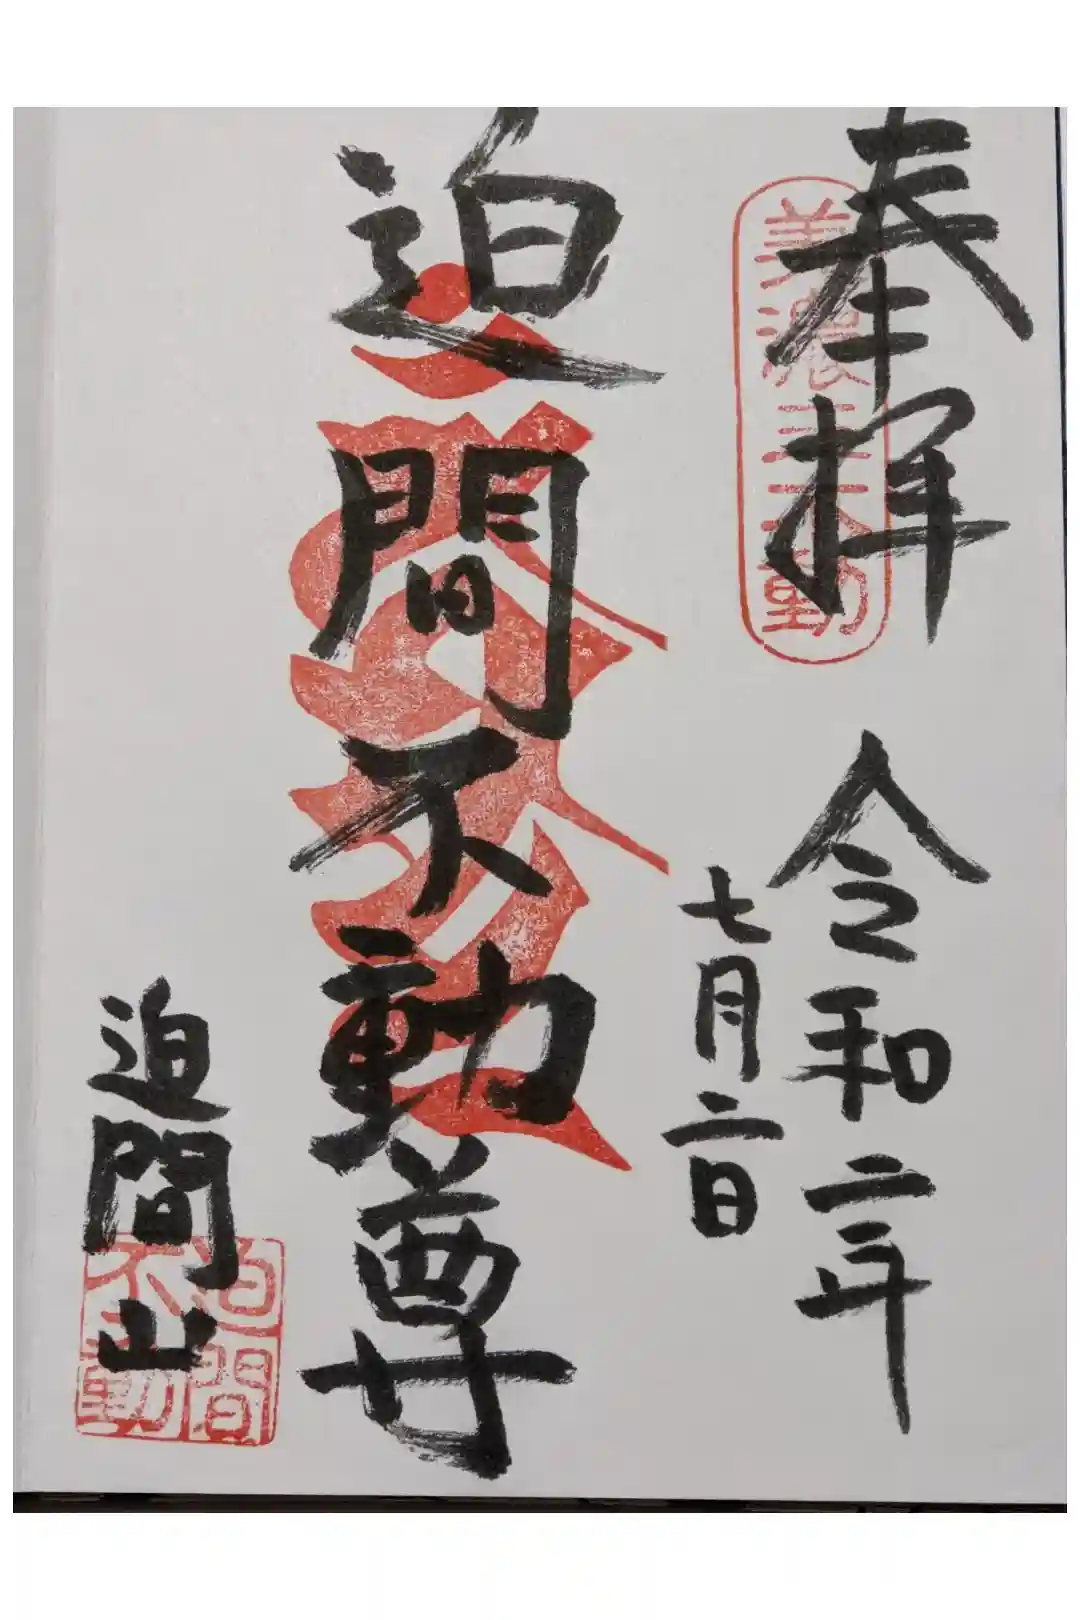 奉拝
美濃三不動
令和二年
七月二日
迫間不動尊
迫間山
迫間不動